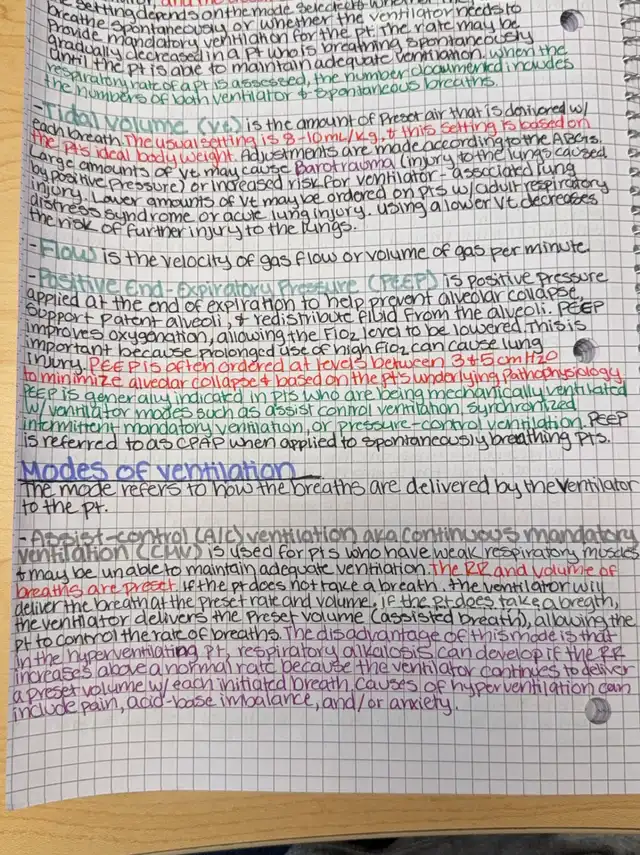 the setting depends on the mode selected & whether the
breathe spontaneously or whether the ventilator needs to
Provide mandatory ventilation for the pt. The rate may be
gradually decreased in a pt who is breathing spontaneously
until the pt is able to maintain adequate ventilation. when the
respiratory rate of a pt is assessed, the number documented includes
the numbers of both ventilator & spontaneous breaths.
-Tidal volume (Vt) is the amount of Preset air that is delivered w/
each breath. The usual setting is 8-10mL/kg, & this setting is based on
the pt's ideal body weight. Adjustments are made according to the ABGs.
Large amounts of Vt may cause Barotrauma (injury to the lungs caused
by positive Pressure) or increased risk for ventilator-associated lung
injury. Lower amounts of Vt may be ordered on pts w/ adult respiratory
distress syndrome or acute lung injury. using a lower Vt decreases
the risk of further injury to the lungs.
-Flow is the velocity of gas flow or volume of gas per minute
-Positive End-Expiratory Pressure (PEEP) is positive pressure
applied at the end of expiration to help prevent alveolar collapse,
support Patent alveoli, & redistribute fluid from the alveoli. PEEP
improves oxygenation, allowing the FiO2 level to be lowered. This is
important because prolonged use of high FiO2 can cause lung
injury. PEEP is often ordered at levels between 3 & 5 cmH2O
to minimize alveolar collapse & based on the pts underlying Pathophysiology
PEEP is generally indicated in pts who are being mechanically ventilated
w/ ventilator modes such as assist control ventilation, synchronized
intermittent mandatory ventilation, or pressure-control ventilation. PEEP
is referred to as CPAP when applied to spontaneously breathing pts.
Modes of ventilation
The mode refers to how the breaths are delivered by the ventilator
to the pt.
-Assist-control (A/C) ventilation aka continuous mandatory
ventilation (CMV) is used for pts who have weak respiratory muscles
& may be unable to maintain adequate ventilation. the RR and volume of
breaths are preset. if the pt does not take a breath, the ventilator will
deliver the breath at the preset rate and volume, if the pt does take a breath,
the ventilator delivers the preset volume (assisted breath), allowing the
pt to control the rate of breaths. The disadvantage of this mode is that
in the hyperventilating pt, respiratory alkalosis can develop if the RR
increases above a normal rate because the ventilator continues to deliver
a preset volume w/ each initiated breath. causes of hyperventilation can
include pain, acid-base imbalance, and/or anxiety.